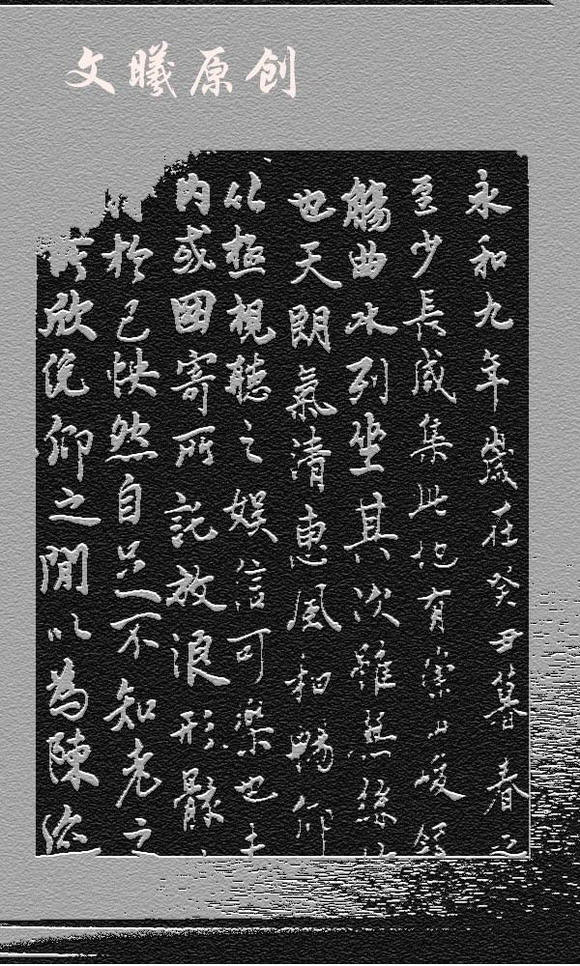 文曦原创
永和九年歲在癸丑暮春之
至少長咸集此地有崇山峻領
觴曲水列坐其次雖無絲
也天朗氣清惠風和暢仰
以極視聽之娛信可樂也夫
內或因寄所託放浪形骸
於己怏然自足不知老之
所欣俛仰之閒以為陳迹